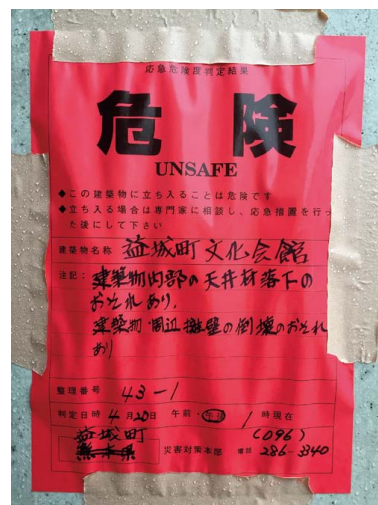 応急危険度判定結果
危険
UNSAFE
◆この建築物に立ち入ることは危険です
◆立ち入る場合は専門家に相談し、応急措置を行っ
た後にして下さい
建築物名称 益城町文化会館
注記: 建築物内部の天井材落下の
おそれあり.
建築物周辺擁壁の倒壊のおそれ
あり
整理番号 43-1
判定日時 4月20日 午前・午後 1時現在
益城町 (096)
熊本県 災害対策本部 電話 286-3340